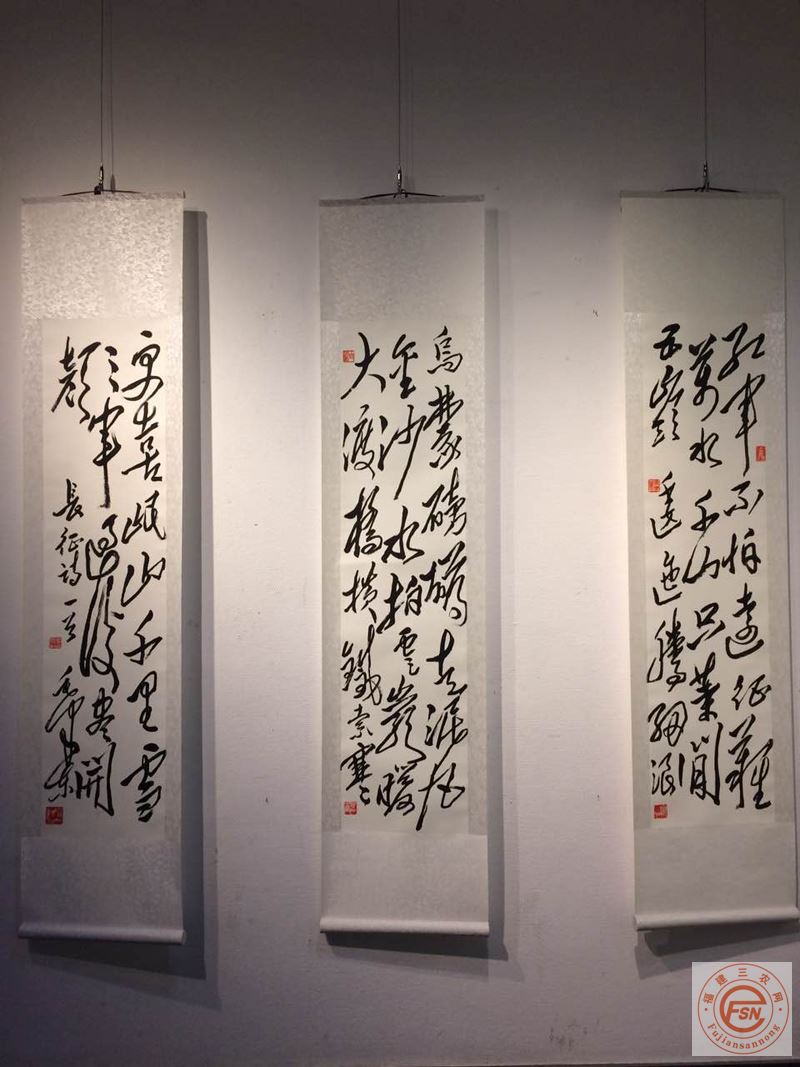 紅軍不怕遠征難
萬水千山只等閒
五嶺逶迤騰細浪
烏蒙磅礴走泥丸
金沙水拍雲崖暖
大渡橋橫鐵索寒
更喜岷山千里雪
三軍過後盡開
顏
長征詩一首
福建三农网
FSN
Fujiansannong